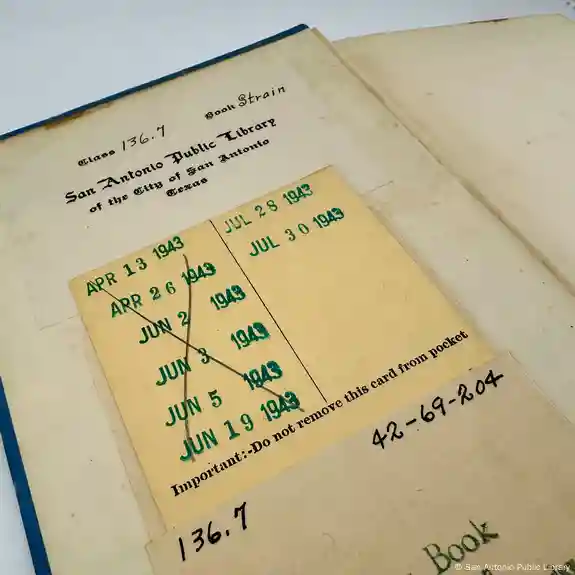 Class 136.7 Book Strain
San Antonio Public Library
of the City of San Antonio
Texas
APR 13 1943
APR 26 1943
JUN 2 1943
JUN 3 1943
JUN 5 1943
JUN 19 1943
JUL 28 1943
JUL 30 1943
Important:-Do not remove this card from pocket
42-69-204
136.7
Book
© San Antonio Public Library